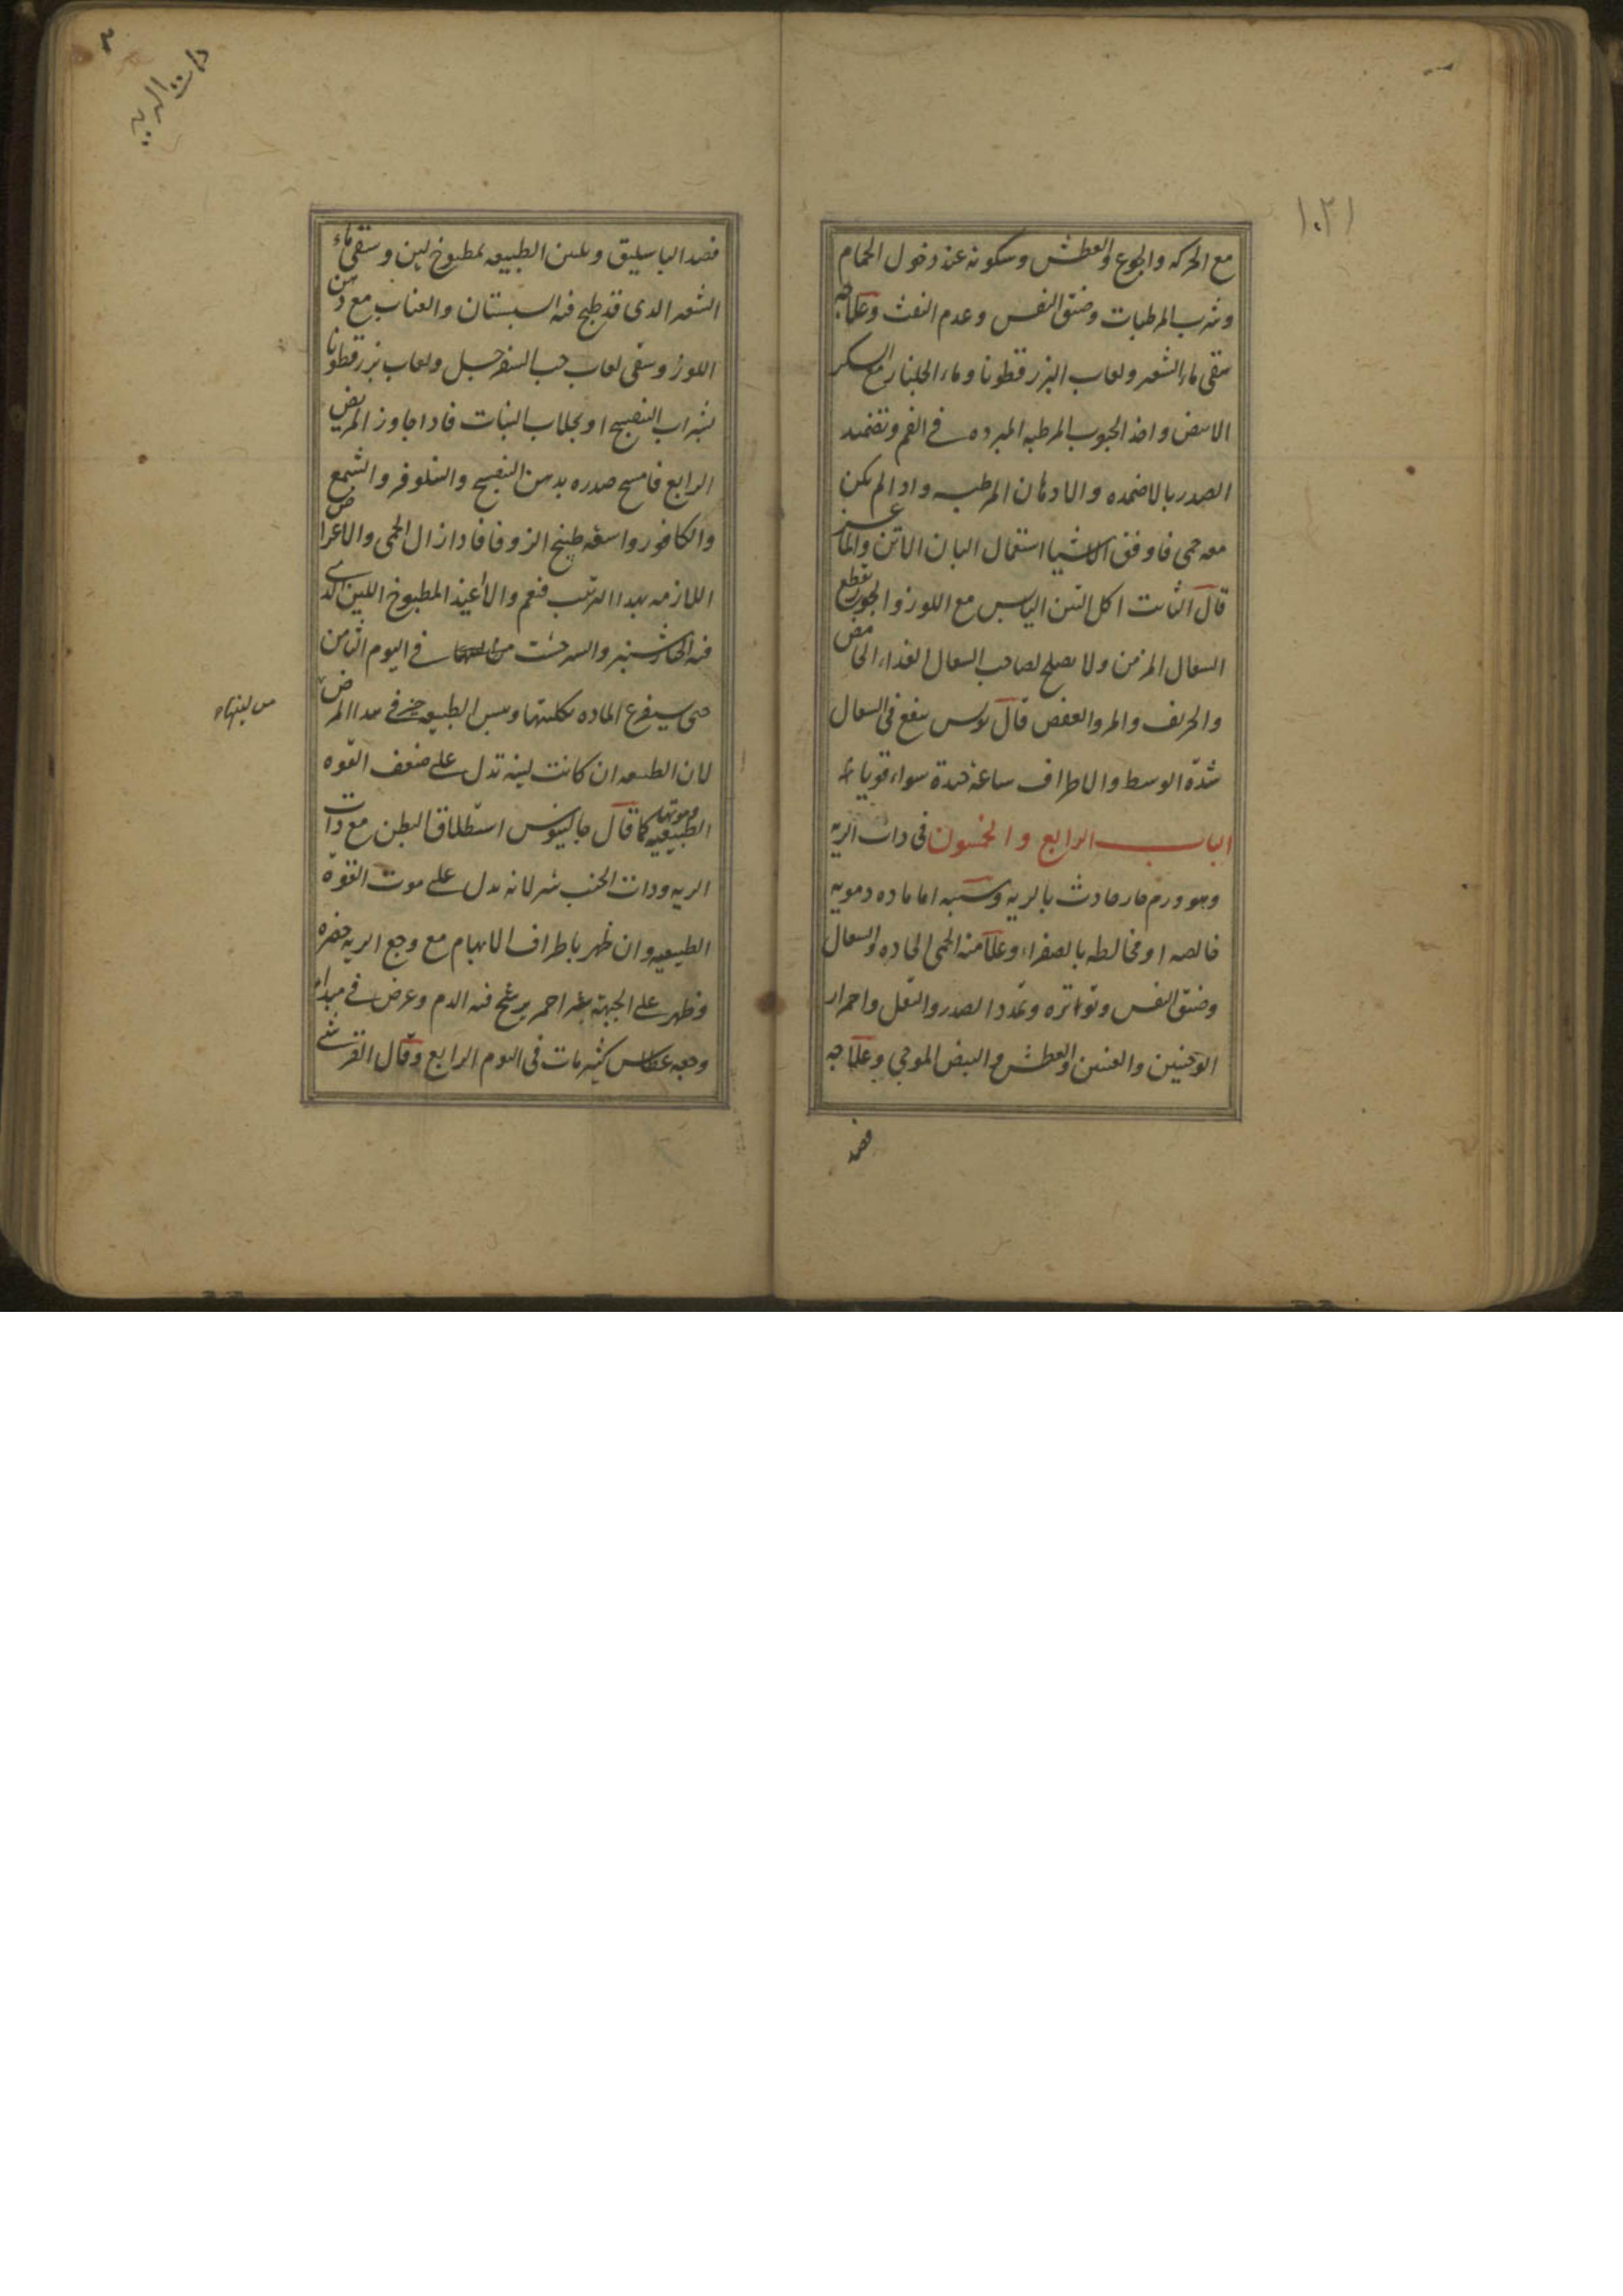 ١٠٢١
مع الحركه والجوع والعطش وسكونه عند دخول الحمام
وشرب المرطبات وضيق النفس وعدم النفث وعلاجه
سقى ماء الشعير ولعاب البزرقطونا وماء الخيار مع السكر
الابيض واخذ الحبوب المرطبه المبرده فى الفم وتضميد
الصدر بالاضمده والادهان المرطبه واذا لم يكن
معه حمى فاوفق الاشيا استعمال البان الاتن والماعز
قال ثابت اكل التين اليابس مع اللوز والجوز يقطع
السعال المزمن ولا يصلح لصاحب السعال الغذاء الحامض
والحريف والمر والعفص قال بولس ينفع فى السعال
شدة الوسط والاطراف ساعة جيدة سواء قويا
الباب الرابع والخمسون فى ذات الريه
وهو ورم حار حادث بالريه وسببه اما ماده دمويه
خالصه او مخالطه بالصفراء وعلامته الحمى الحاده والسعال
وضيق النفس وتواتره وتمدد الصدر والثقل واحمرار
الوجنتين والعينين والعطش والنبض الموجى وعلاجه
فصد
ذات الريه
فصد الباسليق وتليين الطبيعه بمطبوخ لين وسقى ماء
الشعير الذى قد طبخ فيه السبستان والعناب مع دهن
اللوز وسقى لعاب حب السفرجل ولعاب بزرقطونا
بشراب البنفسج او بجلاب النبات فاذا جاوز المريض
الرابع فامسح صدره بدهن البنفسج والنيلوفر والشمع
والكافور واسقه طبيخ الزوفا فاذا زال الحمى والاعراض
اللازمه بهذا الترتيب فنعم والا اعيد المطبوخ اللين الذى
فيه الخيارشنبر والشيرخشت فى اليوم الثامن
حتى يستفرغ الماده بكليتها ويبس الطبيعه خير فى هذا المرض
من لينتها
لان الطبيعه ان كانت لينه تدل على ضعف القوه
الطبيعيه وموتها كما قال جالينوس استطلاق البطن مع ذات
الريه وذات الجنب شر لانه يدل على موت القوة
الطبيعيه وان ظهر باطراف الابهام مع وجع الريه خضره
وظهر على الجبهة بثر احمر يرشح فيه الدم وعرض فى مبداء
وجعه عطاس كثير مات فى اليوم الرابع وقال القرشى